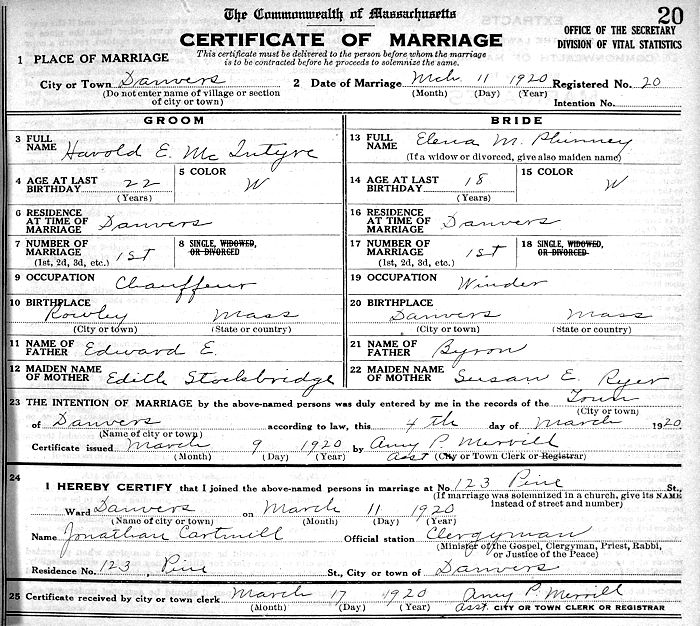 The Commonwealth of Massachusetts
20
CERTIFICATE OF MARRIAGE
OFFICE OF THE SECRETARY
DIVISION OF VITAL STATISTICS
This certificate must be delivered to the person before whom the marriage
is to be contracted before he proceeds to solemnize the same.
1 PLACE OF MARRIAGE
City or Town Danvers 2 Date of Marriage Mch 11 1920 Registered No. 20
(Do not enter name of village or section of city or town) (Month) (Day) (Year) Intention No.
GROOM
3 FULL NAME Harold E. McIntyre
4 AGE AT LAST BIRTHDAY 22 (Years) 5 COLOR W
6 RESIDENCE AT TIME OF MARRIAGE Danvers
7 NUMBER OF MARRIAGE 1st (1st, 2d, 3d, etc.) 8 SINGLE, WIDOWED, OR DIVORCED
9 OCCUPATION Chauffeur
10 BIRTHPLACE Rowley Mass
(City or town) (State or country)
11 NAME OF FATHER Edward E.
12 MAIDEN NAME OF MOTHER Edith Stockbridge
BRIDE
13 FULL NAME Elena M. Phinney
(If a widow or divorced, give also maiden name)
14 AGE AT LAST BIRTHDAY 18 (Years) 15 COLOR W
16 RESIDENCE AT TIME OF MARRIAGE Danvers
17 NUMBER OF MARRIAGE 1st (1st, 2d, 3d, etc.) 18 SINGLE, WIDOWED, OR DIVORCED
19 OCCUPATION Winder
20 BIRTHPLACE Danvers Mass
(City or town) (State or country)
21 NAME OF FATHER Byron
22 MAIDEN NAME OF MOTHER Susan E. Ryer
23 THE INTENTION OF MARRIAGE by the above-named persons was duly entered by me in the records of the Town
(City or town)
of Danvers according to law, this 4th day of March 1920
(Name of city or town)
Certificate issued March 9 1920 by Amy P. Merrill
(Month) (Day) (Year) Asst (City or Town Clerk or Registrar)
24 I HEREBY CERTIFY that I joined the above-named persons in marriage at No. 123 Pine St.,
(If marriage was solemnized in a church, give its NAME instead of street and number)
Ward Danvers on March 11 1920
(Name of city or town) (Month) (Day) (Year)
Name Jonathan Cartmill Official station Clergyman
(Minister of the Gospel, Clergyman, Priest, Rabbi, or Justice of the Peace)
Residence No. 123, Pine St., City or town of Danvers
25 Certificate received by city or town clerk March 17 1920 Amy P. Merrill
(Month) (Day) (Year) asst. CITY OR TOWN CLERK OR REGISTRAR